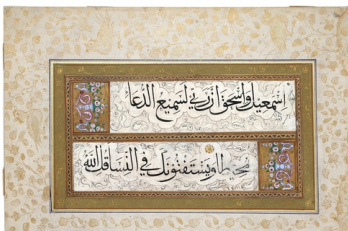 اسمعيل واسحق ان ربي لسميع الدعا
محيطا ويستفتونك في النسا قل الله